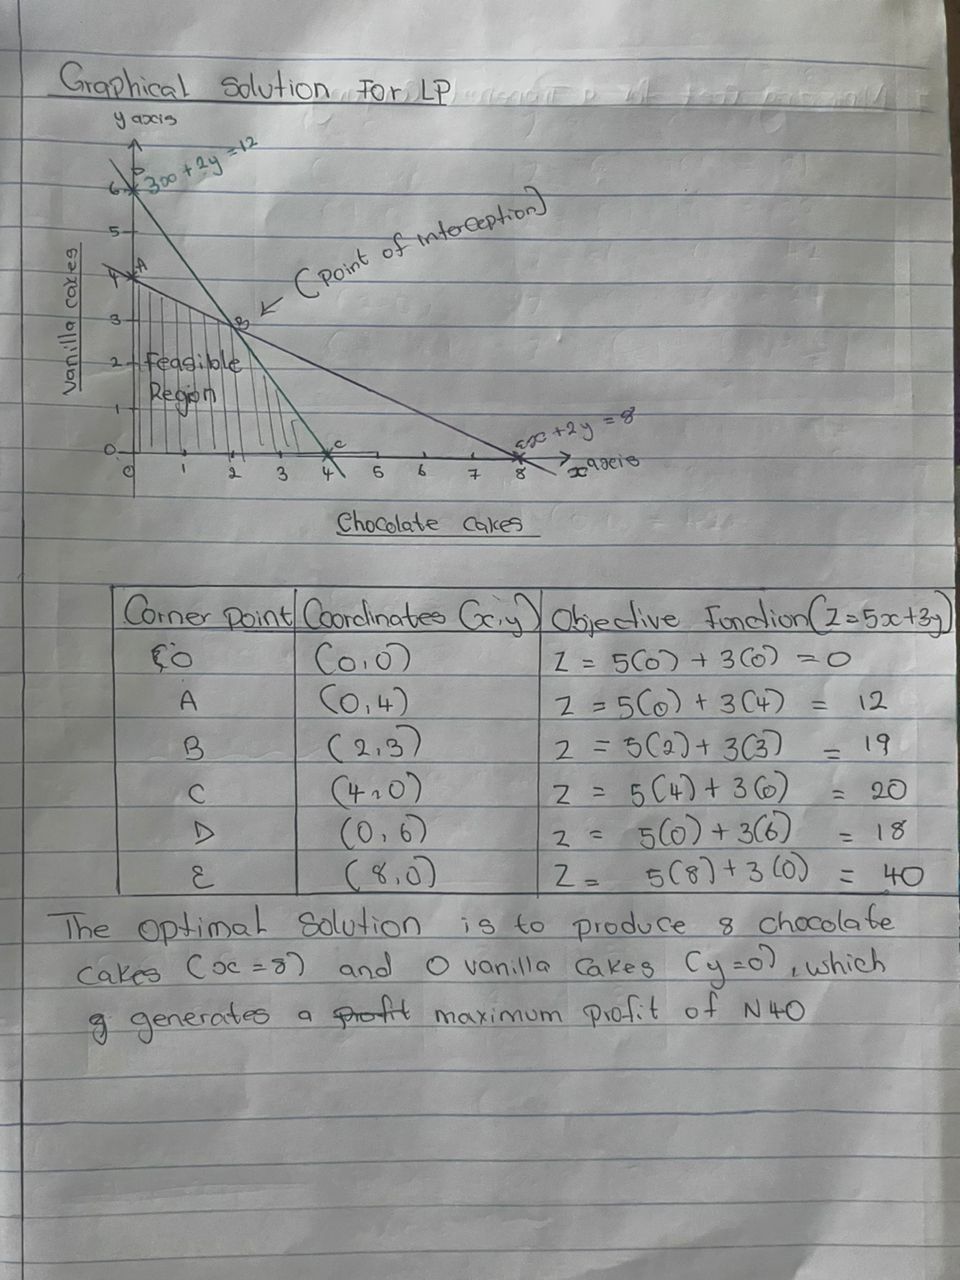 Graphical Solution For LP
y axis
D
3x + 2y = 12
6
5
(Point of interception)
A
4
Vanilla cakes
3
B
2
Feasible
Region
1
C
x + 2y = 8
0
0 1 2 3 4 5 6 7 8
x axis
Chocolate cakes
Corner point Coordinates (x,y) Objective Fonction (Z=5x+3y)
O (0,0) Z = 5(0) + 3(0) = 0
A (0,4) Z = 5(0) + 3(4) = 12
B (2,3) Z = 5(2) + 3(3) = 19
C (4,0) Z = 5(4) + 3(0) = 20
D (0,6) Z = 5(0) + 3(6) = 18
E (8,0) Z = 5(8) + 3(0) = 40
The optimal Solution is to produce 8 chocolate
cakes (x=8) and 0 vanilla cakes (y=0), which
generates a profit maximum profit of N40